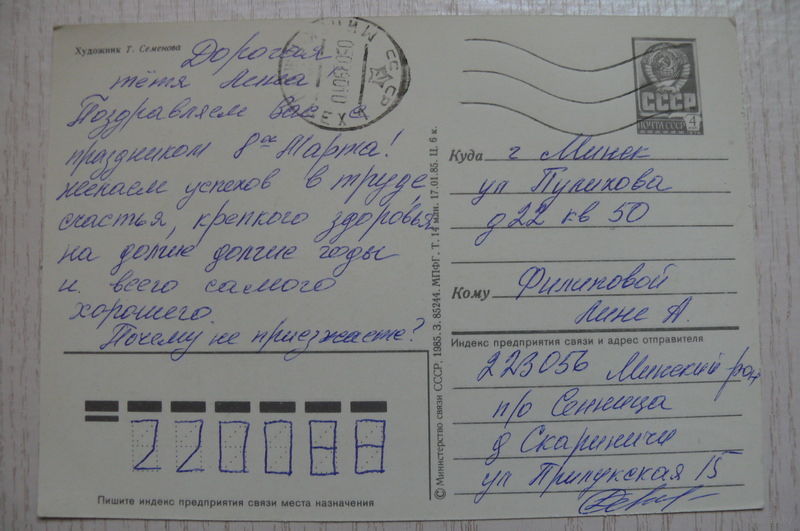 Художник Т. Семенова
Дорогая
тётя Лена
Поздравляем Вас с
праздником 8ое Марта!
желаем успехов в труде,
счастья, крепкого здоровья
на долгие долгие годы
и всего самого
хорошего.
Почему не приезжаете?
220088
Пишите индекс предприятия связи места назначения
© Министерство связи СССР, 1985. З. 85244. МПФГ. Т. 14 млн. 17.01.85. Ц. 6 к.
СССР
ПОЧТА СССР 4
Куда г Минск
ул Пулихова
д 22 кв 50
Кому Филиповой
Лине А.
Индекс предприятия связи и адрес отправителя
223056 Минский рон
п/о Сенница
д Скариничи
ул Прилукская 15